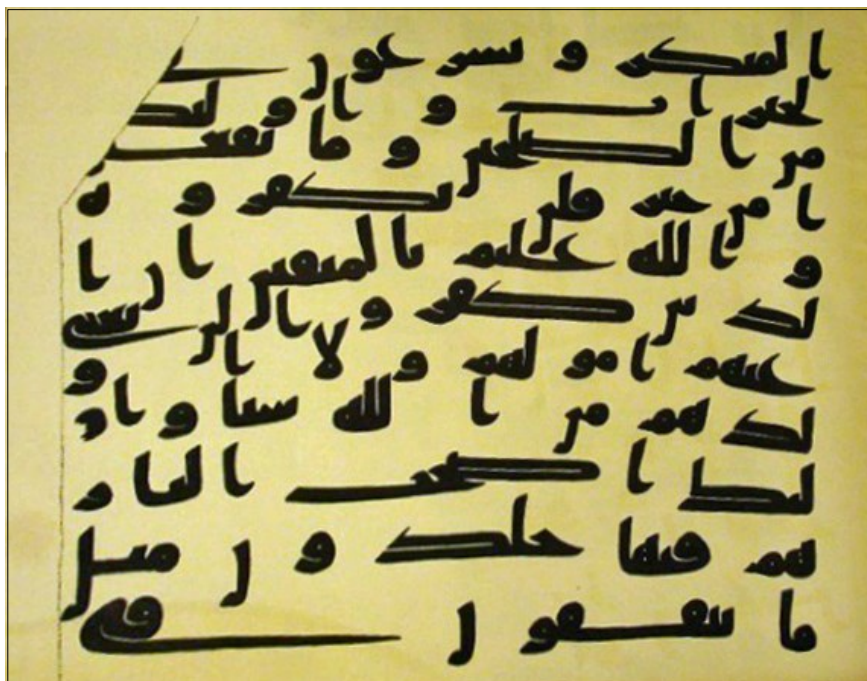 المنكر و يسرعون في
الخيرات و اولئك
من الصلحين و ما تفعلو
ا من خير فلن يكفروه
و الله عليم بالمتقين ان ا
لذين كفروا لن تغني
عنهم امولهم ولا او
لدهم من الله شيا و او
لئك اصحب النار
هم فيها خلدون مثل
ما ينفقون في